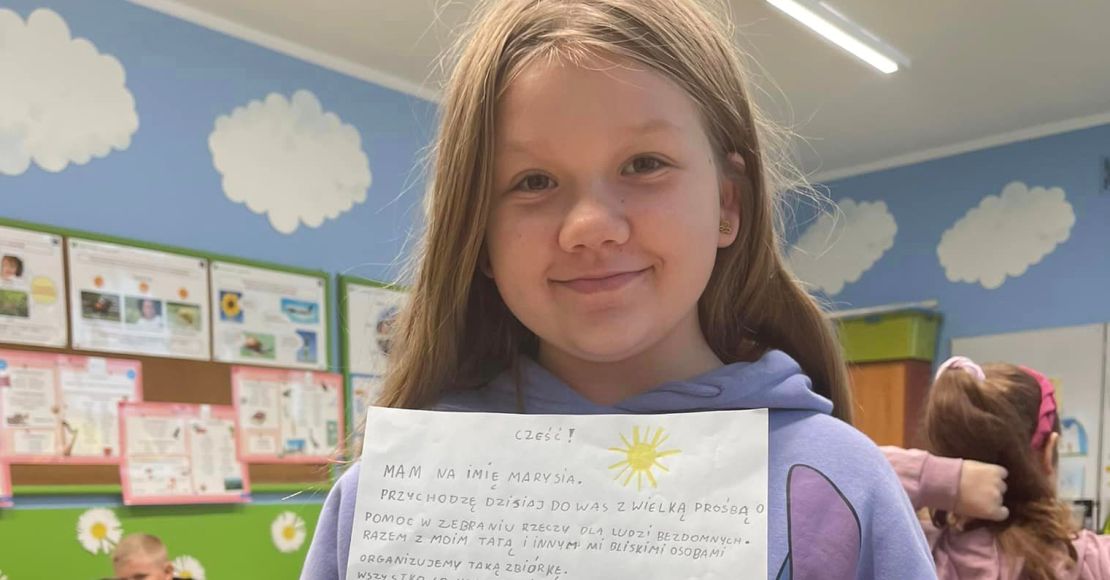 CZEŚĆ!
MAM NA IMIĘ MARYSIA.
PRZYCHODZĘ DZISIAJ DO WAS Z WIELKĄ PROŚBĄ O
POMOC W ZEBRANIU RZECZY DLA LUDZI BEZDOMNYCH.
RAZEM Z MOIM TATĄ I INNYMI MI BLISKIMI OSOBAMI
ORGANIZUJEMY TAKĄ ZBIÓRKĘ.
WSZYSTKO